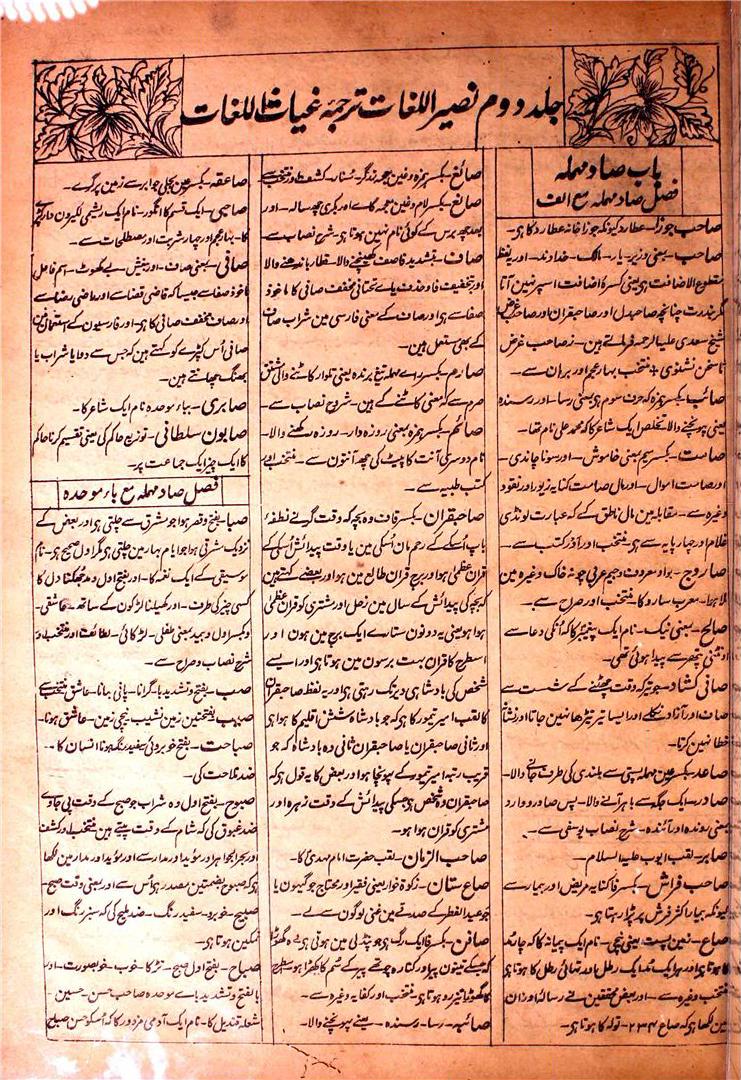 جلد دوم نصیر اللغات ترجمۂ غیاث اللغات
باب صاد مہملہ
فصل صاد مہملہ مع الف
صاحب جوزا۔ عطارد کیونکہ جوزا خانہ عطارد کا ہی۔
صاحب۔ بمعنی وزیر۔ یار۔ مالک۔ خداوند۔ اور یہ لفظ
مقطوع الاضافت ہی یعنی کسرۂ اضافت اسپر نہین آتا
مگر بندرت چنانچہ صاحبدل اور صاحبقران اور صاحب غرض
شیخ سعدی علیہ الرحمہ فرماتے ہین۔ ز صاحب غرض
تا سخن نشنوی ؞ منتخب بہار عجم اور برہان سے۔
صائب۔ بکسر ہمزہ کہ حرف سوم ہی یعنی رسا۔ اور رسندہ
یعنی پہونچنے والا۔ تخلص ایک شاعر کا کہ محمد علی نام تھا۔
صامت۔ بکسر میم بمعنی خاموش۔ اور سونا چاندی۔
اور صامت اموال۔ اور مال صامت کنایہ زیور اور نقود
وغیرہ سے۔ مقابلہ مین مال ناطق کے کہ عبارت لونڈی
غلام اور چارپایہ سے ہی۔ منتخب اور آذر کتب سے۔
صاروج۔ بواو معروف و جیم عربی چونہ خاک وغیرہ مین
ملا ہوا۔ معرب سارو کا۔ منتخب اور صراح سے۔
صالح۔ بمعنی نیک۔ نام ایک پیغمبر کا کہ اُنکی دعا سے
اونٹنی پتھر سے پیدا ہوئی تھی۔
صافی کشاد۔ جو تیر کہ وقت چھٹنے کے شست سے
صاف اور آزاد نکلے اور ایسا تیر ٹیڑھا نہین جاتا اور نشانہ
خطا نہین کرتا۔
صاعد۔ بکسر عین مہملہ پستی سے بلندی کی طرف جانے والا۔
صادر۔ ایک جگہ سے باہر آنے والا۔ پس صادر و وارد
بمعنی روندہ اور آئندہ۔ شرح نصاب یوسفی سے۔
صابر۔ لقب ایوب علیہ السلام۔
صاحب فراش۔ بکسر فا کنایہ مریض اور بیمار سے
کیونکہ بیمار اکثر فرش پر پڑا رہتا ہی۔
صاع۔ زمین پست یعنی نیچی۔ نام ایک پیمانہ کا کہ چار مد
کا ہوتا ہی اور ہر ایک مد ایک رطل اور تہائی رطل کا ہوتا ہی
منتخب وغیرہ سے۔ اور بعض محققین نے رسالہ اوزان
مین لکھا ہی کہ صاع ۲۳۴۔ تولہ کا ہوتا ہی۔
صائغ۔ بکسر ہمزہ و غین معجمہ زرگر۔ سنار۔ کشف و منتخب سے
صالغ۔ بکسر لام و غین معجمہ گاے اور بکری چھ سالہ۔ اور
بعد چھ برس کے کوئی نام نہین ہوتا ہی۔ شرح نصاب سے۔
صاف۔ بتشدید فا صف کھینچنے والا۔ قطار باندھنے والا
اور بتخفیف فا و حذف یاے تحتانی مخفف صافی کا ماخوذ
صفا سے ہی اور صاف کے معنی فارسی مین شراب صاف
کے بھی مستعمل ہین۔
صارم۔ بکسر راے مہملہ تیغ برندہ یعنی تلوار کاٹنے والی مشتق
صرم سے کہ معنی کاٹنے کے ہین۔ شروح نصاب سے۔
صائم۔ بکسر ہمزہ بمعنی روزہ دار۔ روزہ رکھنے والا۔
نام دوسری آنت کا پیٹ کی چھ آنتون سے۔ منتخب اور
کتب طبیہ سے۔
صاحبقران۔ بکسر قاف وہ بچہ کہ وقت گرنے نطفۂ
باپ اُسکے کے رحم مان اُسکی مین یا وقت پیدائش اُسکی کے
قران عظمی ہو اور برج قران طالع مین ہو اور بعضے کہتے ہین
کہ بچہ کی پیدائش کے سال مین زحل اور مشتری کو قران عظمیٰ
ہوا ہو یعنی یہ دونون ستارے ایک برج مین ہون اور
اسطرح کا قران بہت برسون مین ہوتا ہی اور ایسے
شخص کی بادشاہی دیر تک رہتی ہی اور یہ لفظ صاحبقران
کا لقب امیر تیمور کا ہی کہ جو بادشاہ شش اقلیم کا ہوا ہی
اور ثانی صاحبقران یا صاحبقران ثانی وہ بادشاہ کہ جو
قریب رتبہ امیر تیمور کے پہونچا ہو اور بعض کا یہ قول ہی کہ
صاحبقران وہ شخص ہی جسکی پیدائش کے وقت زہرہ اور
مشتری کو قران ہوا ہو۔
صاحب الزمان۔ لقب حضرت امام مہدی کا۔
صاع ستان۔ زکوٰۃ خوار یعنی فقیر اور محتاج جو گیہون یا
جو عید الفطر کے صدقے مین غنی لوگون سے لے۔
صافن۔ بکسر فا ایک رگ ہی جو پنڈلی مین ہوتی ہی وہ گھوڑا
کہ جسکے تینون پاؤن اور کنارہ چوتھے پیر کے سُم کا کھڑا ہو اسطرح
کا گھوڑا تیز رو ہوتا ہی۔ منتخب اور کفایہ وغیرہ سے۔
صائبہ۔ رسا۔ رسندہ۔ یعنے پہونچنے والا۔
صاعقہ۔ بکسر عین بجلی جو ابر سے زمین پر گرے۔
صاحبی۔ ایک قسم کا انگور۔ نام ایک ریشمی لکیرون دار کپڑے
کا۔ بہار عجم اور چہار شربت اور مصطلحات سے۔
صافی۔ بمعنی صاف۔ اور بیغش۔ بے کھوٹ۔ اسم فاعل
ماخوذ صفا سے جیسا کہ قاضی قضا سے اور ماضی مضا سے
اور صاف مخفف صافی کا ہی۔ اور فارسیون کے استعمال مین
صافی اُس کپڑے کو کہتے ہین کہ جس سے دوا یا شراب یا
بھنگ چھانتے ہین۔
صابری۔ بباء موحدہ نام ایک شاعر کا۔
صابون سلطانی۔ توزیع حاکم کی یعنی تقسیم کرنا حاکم
کا ایک چیز ایک جماعت پر۔
فصل صاد مہملہ مع باء موحدہ
صبا۔ بفتح و قصر ہوا جو مشرق سے چلتی ہی اور بعض کے
نزدیک شرقی ہوا جو ایام بہار مین چلتی ہی مگر اول صحیح ہی۔ نام
موسیقی کے ایک نغمہ کا۔ اور بفتح اول و مد جھکنا دل کا
کسی چیز کی طرف۔ اور کھیلنا لڑکون کے ساتھ۔ عاشقی۔
و بکسر اول و بمد بمعنی طفلی۔ لڑکائی۔ لطائف اور منتخب و
شرح نصاب و صراح سے۔
صب۔ بفتح و تشدید با۔ گرانا۔ پانی بہانا۔ عاشق منتخب سے
صبب بفتحتین زمین نشیب نیچی زمین۔ عاشق ہونا۔
صباحت۔ بفتح خوبروئی سفید رنگ ہونا انسان کا۔
ضد ملاحت کی۔
صبوح۔ بفتح اول وہ شراب جو صبح کے وقت پی جاوے
ضد غبوق کی کہ شام کے وقت پیتے ہین منتخب اور کشف
اور بحر الجواہر اور مؤید اور مدار سے اور مؤید اور مدار مین لکھا
ہی کہ صبوح بضمتین مصدر ہی اس سے اور بمعنی وقت صبح۔
صبیح۔ خوبرو۔ سفید رنگ۔ ضد ملیح کی کہ سبز رنگ اور
نمکین ہوتا ہی۔
صباح۔ بفتح اول صبح۔ تڑکا۔ خوب۔ خوبصورت۔ اور
بالفتح و تشدید باے موحدہ صاحب حسن۔ حسین۔
شعلہ قندیل کا۔ نام ایک آدمی مزدور کا کہ اُسکو حسن صباح